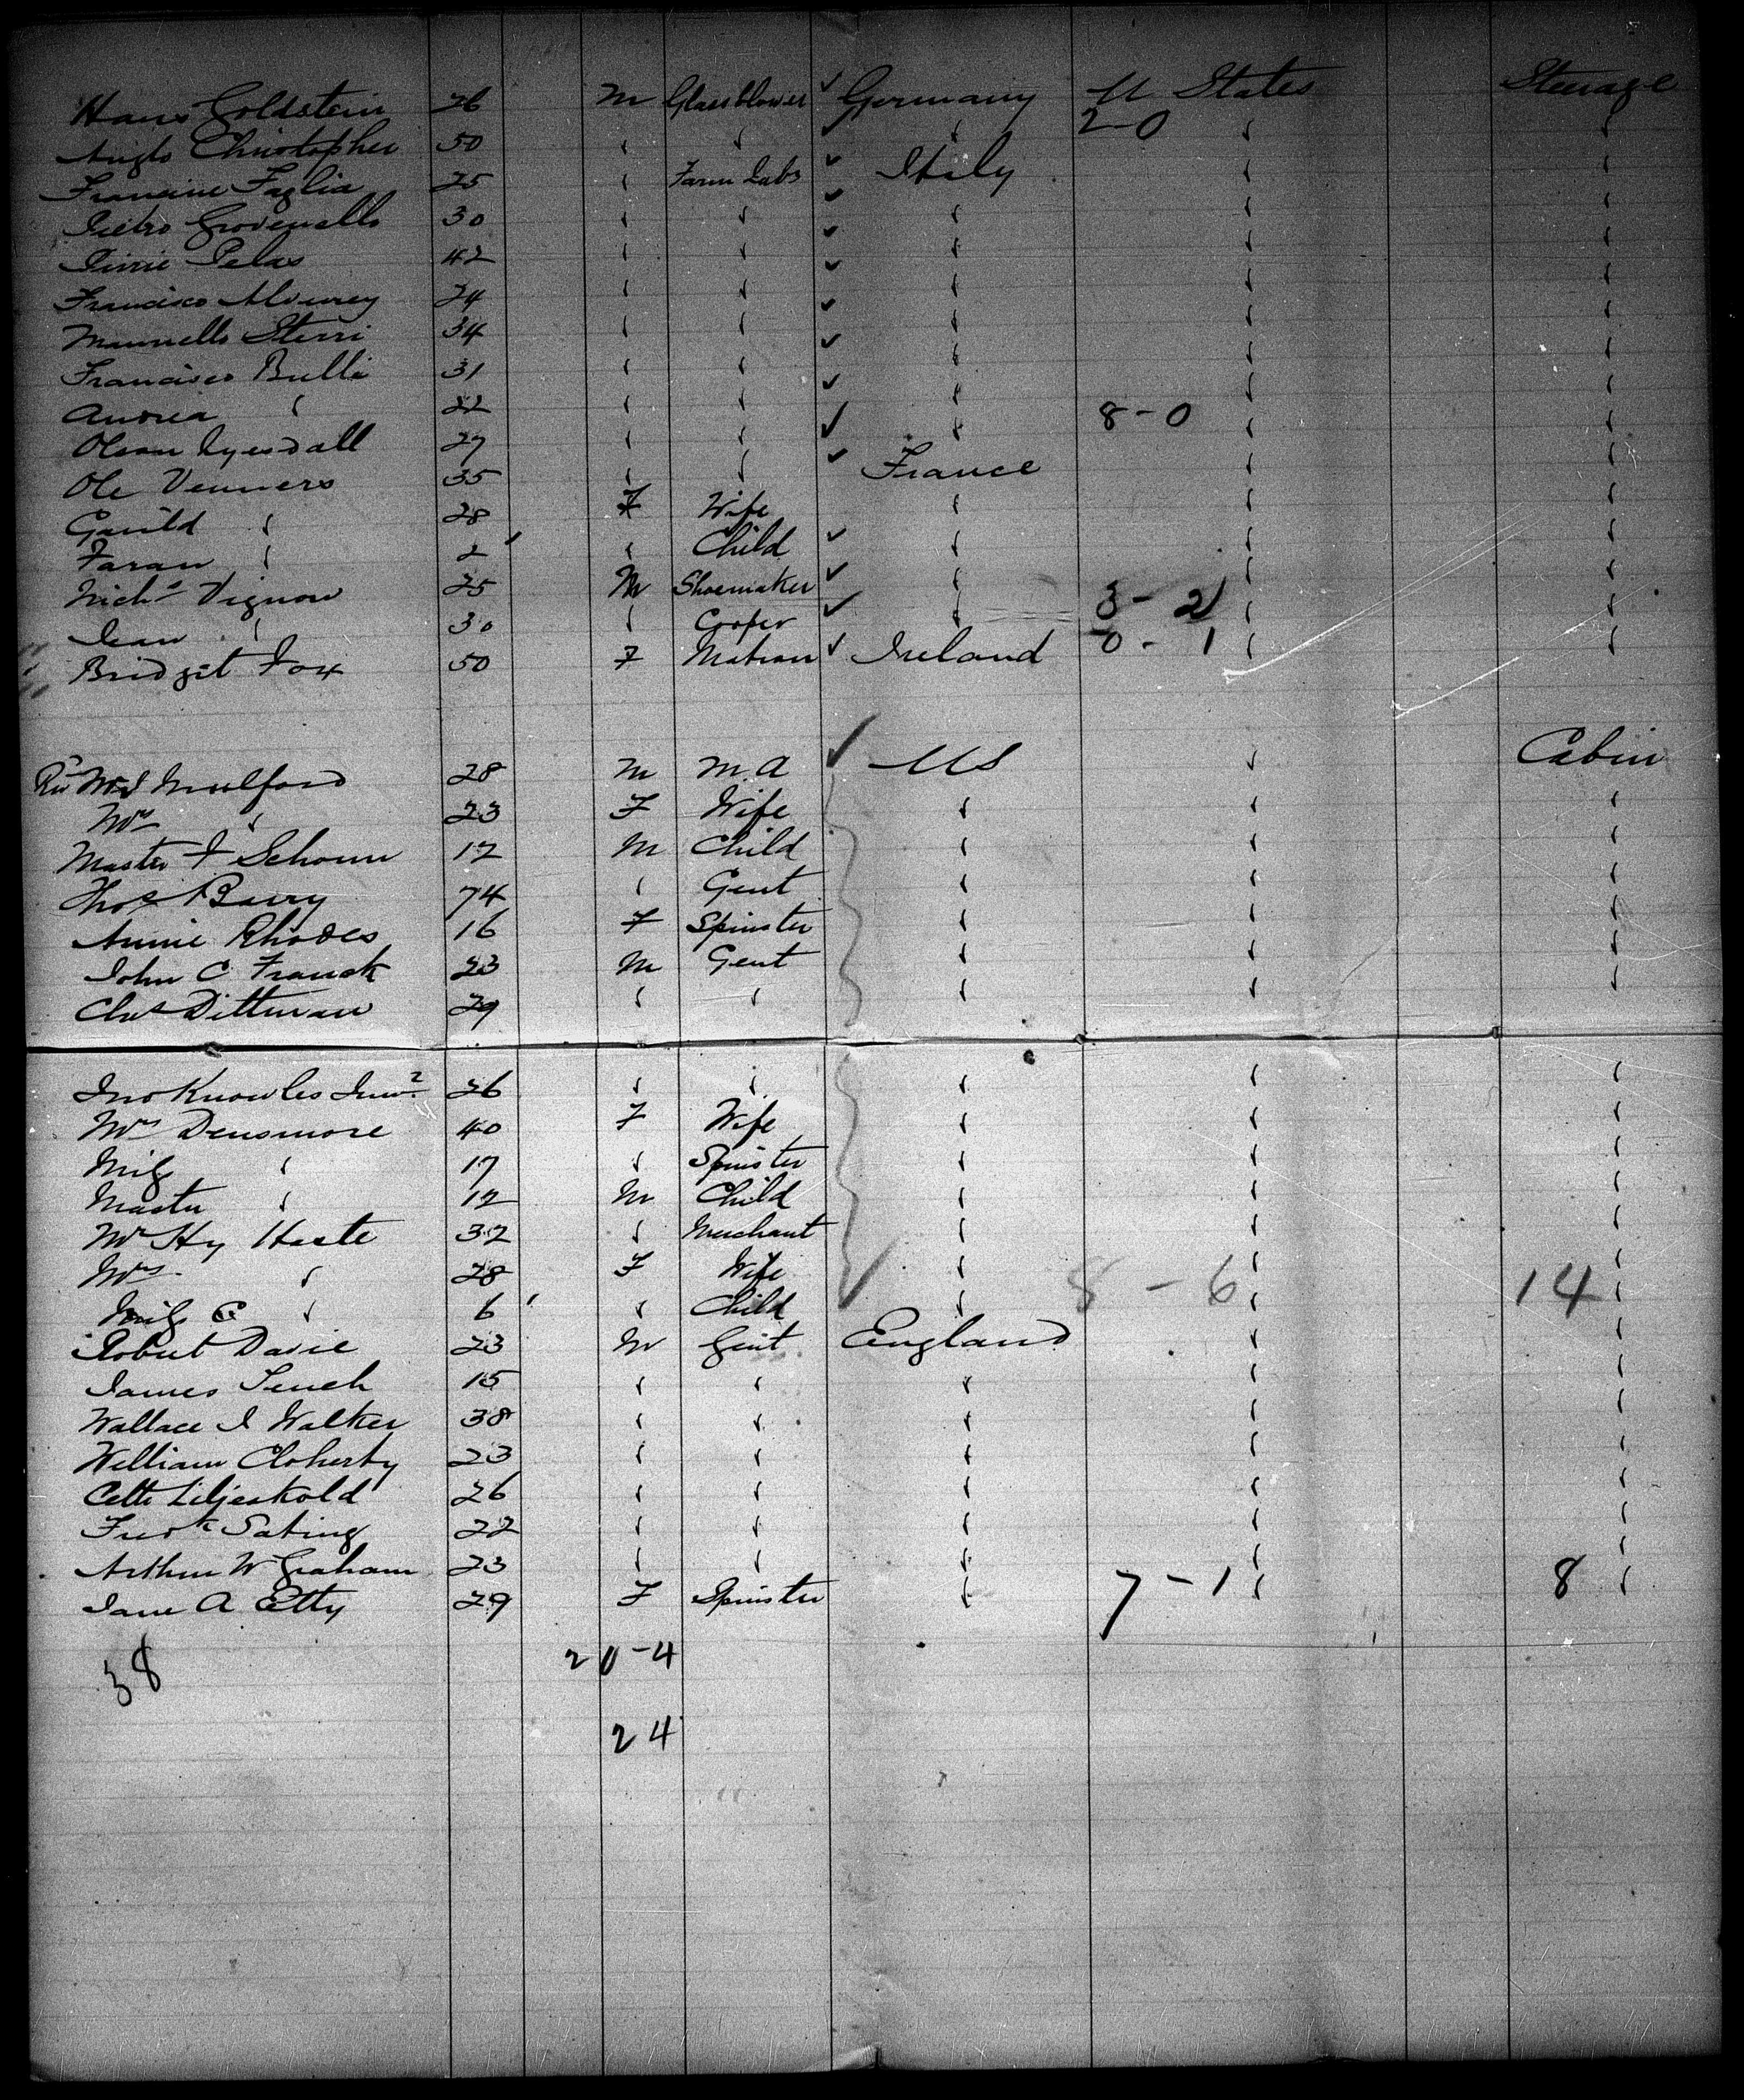 Hans Goldstein 26 M Glassblower ✓ Germany U States Steerage
Anglo Christopher 50 " " ✓ " 2-0 " "
Francine Faglia 25 " Farm Labs ✓ Italy " "
Pietro 30 " " ✓ " " "
Pelas 42 " " ✓ " " "
Francisco 24 " " ✓ " " "
Mannello Sterri 34 " " ✓ " " "
Francisco Bulli 31 " " ✓ " " "
Andrea " 22 " " ✓ " 8-0 " "
27 " " ✓ " " "
Ole Venners 35 " " ✓ France " "
" 28 F Wife " " "
Faran " 2 " Child ✓ " " "
Nichs Vignow 25 M Shoemaker ✓ " " "
Jean " 30 " Cooper ✓ " 3-2 " "
Bridget Fox 50 F Matron ✓ Ireland 0-1 " "
Mulford 28 M M.A ✓ US " Cabin
Mrs " 23 F Wife " " "
Master F Schoum 12 M Child " " "
Thos Barry 74 " Gent " " "
Annie Rhodes 16 F Spinster " " "
John C Franck 23 M Gent " " "
Chas Dittman 29 " " " " "
Jno Knowles Junr 26 " " " " "
Mrs Densmore 40 F Wife " " "
Miss " 17 " Spinster " " "
Master " 12 M Child " " "
Mr Hy Haste 32 " Merchant " " "
Mrs " 28 F Wife " " "
Miss C " 6 " Child ✓ " 8-6 " 14 "
Robert Davie 23 M Gent England " "
James Tench 15 " " " " "
Wallace J Walker 38 " " " " "
William Cloherty 23 " " " " "
Liljeskold 26 " " " " "
Fredk 22 " " " " "
Arthur W Graham 23 " " " " "
Jane A Etty 29 F Spinster " 7-1 " 8 "
38 20-4
24